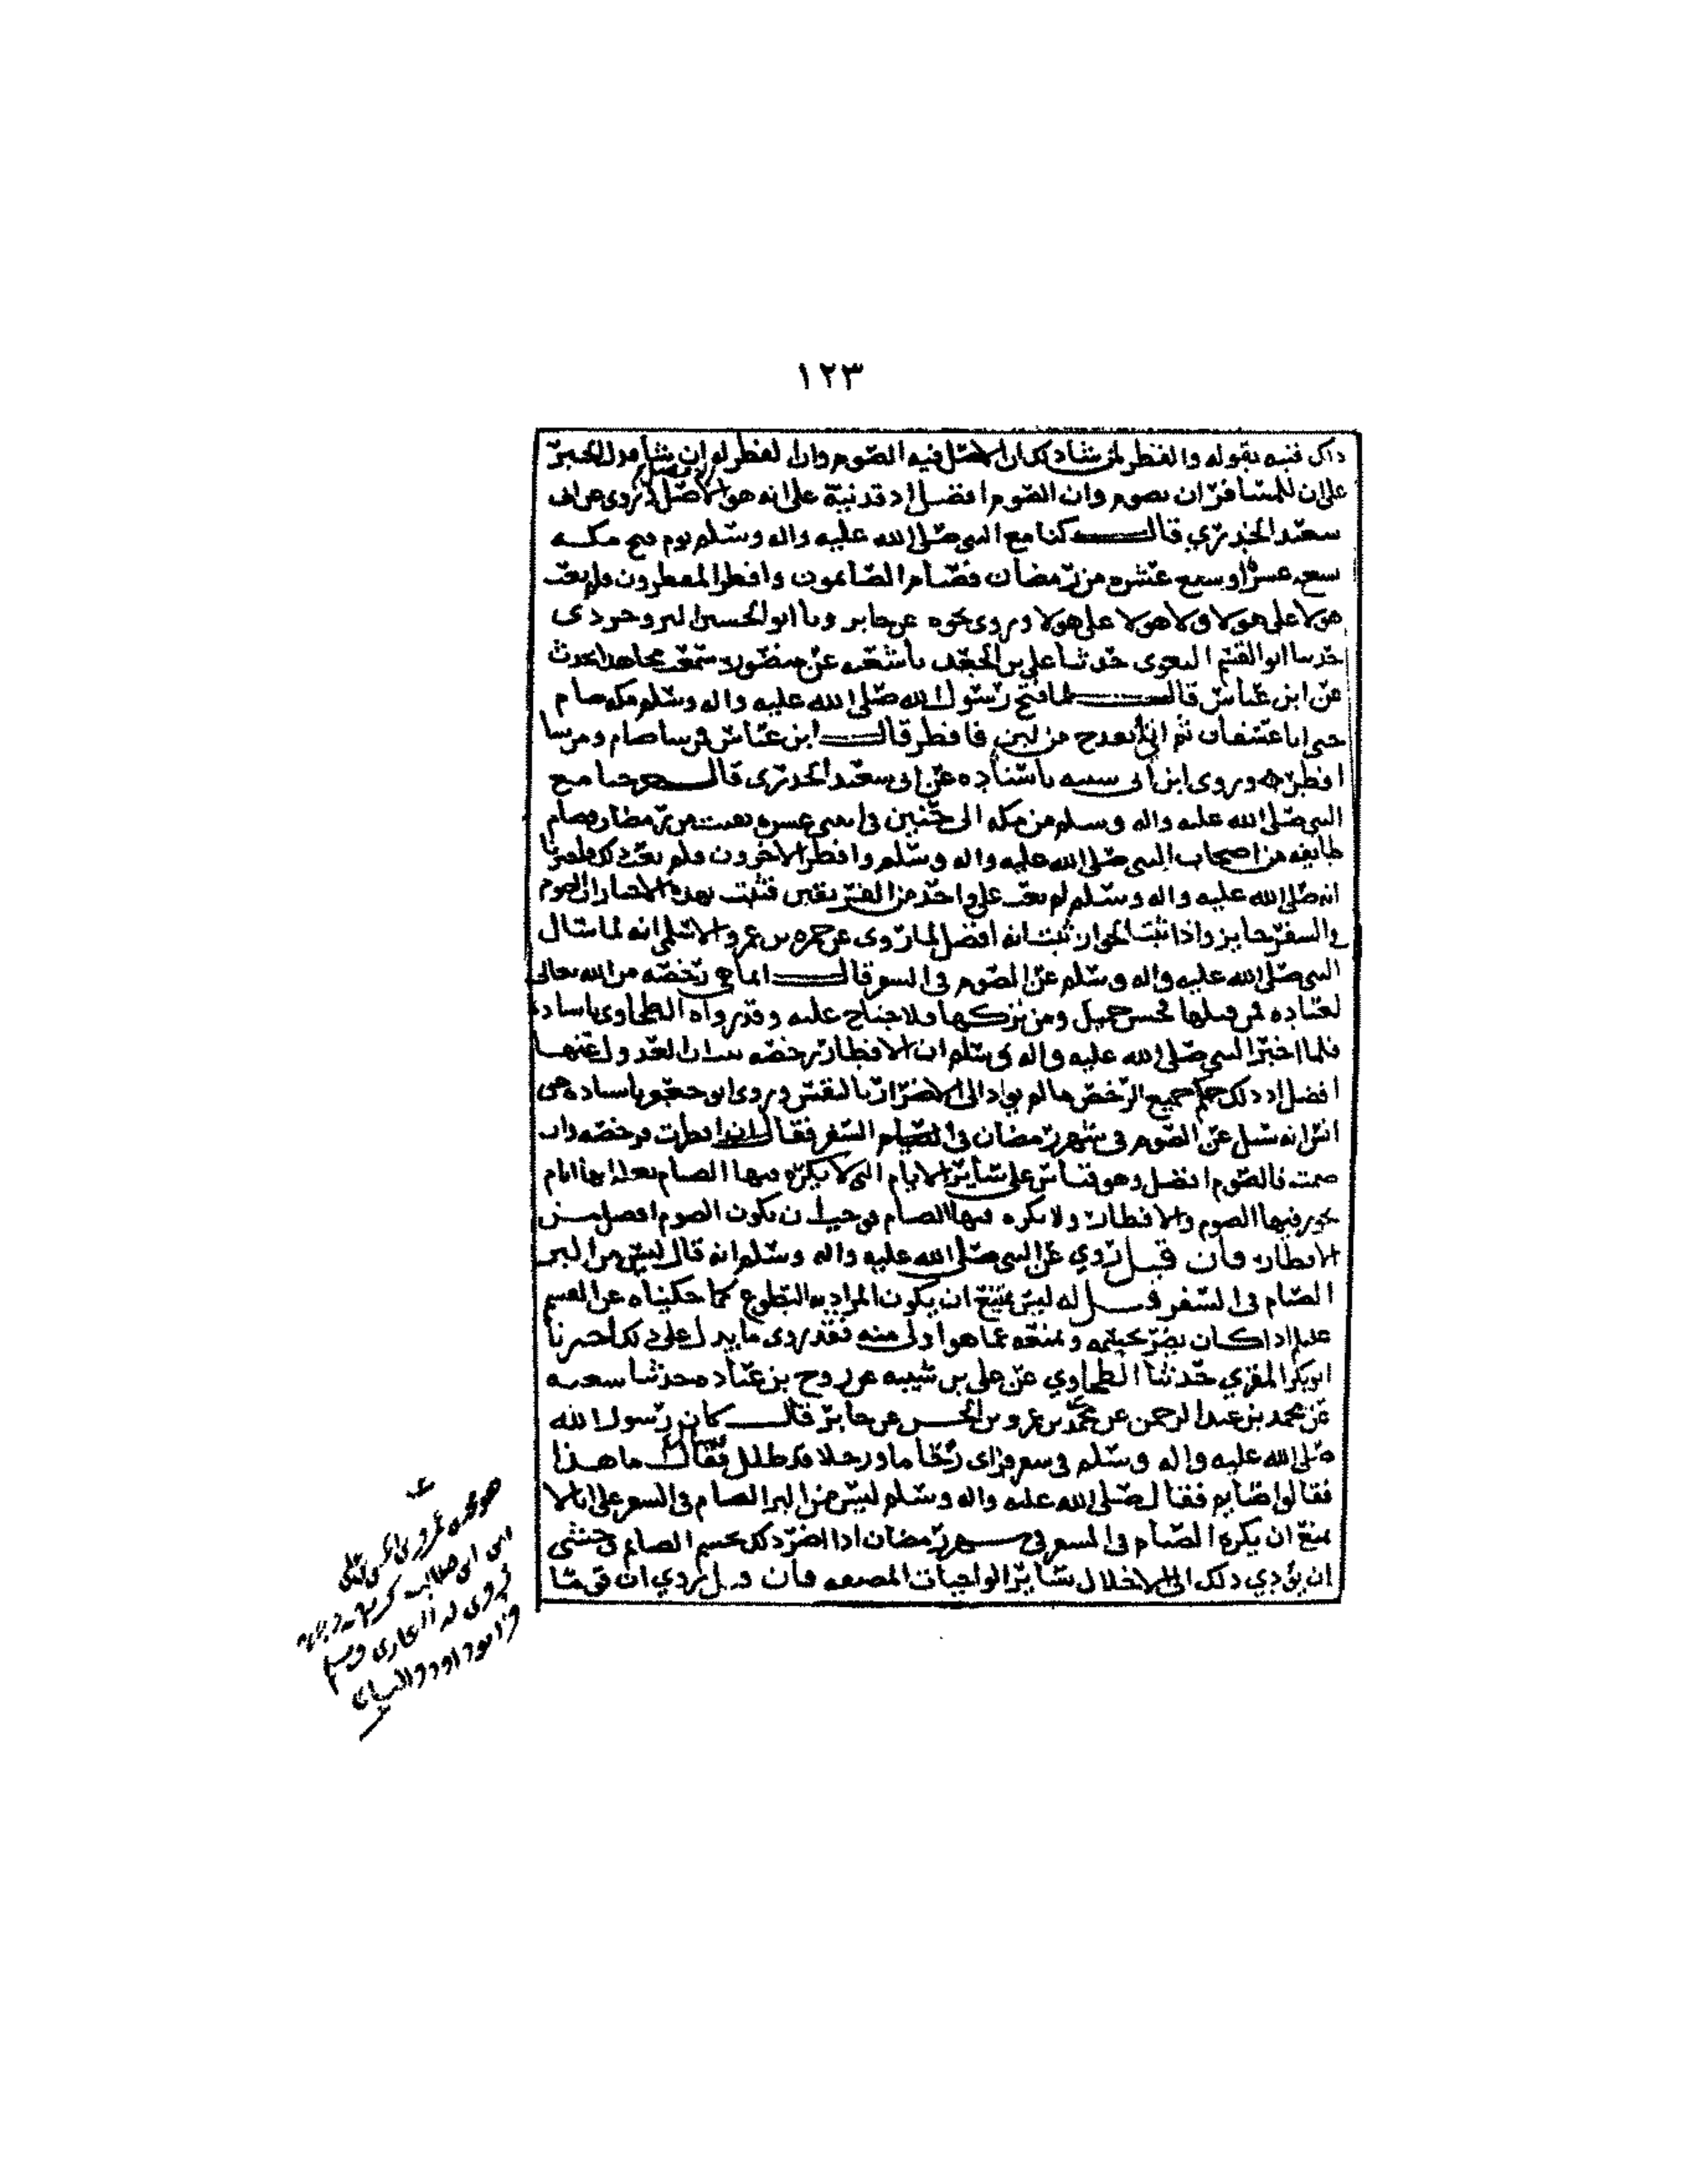 ١٢٣
ذلك فنبه بقوله والفطر لمن شاء ذلك ان الأصل فيه الصوم وان الفطر له ان شاء فدل الخبر
على ان للمسافر ان يصوم وان الصوم افضل اذ قد نبه على انه هو الأصل روى عن ابى
سعيد الخدري قال كنا مع النبي صلى الله عليه واله وسلم يوم فتح مكه
تسع عشره او سبع عشره من رمضان فصام الصائمون وافطر المفطرون ولم يعب
هولا على هولا ولا هولا على هولا وروى نحوه عن جابر ونا ابو الحسين البروجردى
حدثنا ابو القسم البغوى حدثنا علي بن الجعد نا شعبه عن منصور سمعت مجاهدا يحدث
عن ابن عباس قال لما فتح رسول الله صلى الله عليه واله وسلم مكه صام
حتى اتا عسفان ثم اتى بقدح من لبن فافطر قال ابن عباس فمن شا صام ومن شا
افطر وروى ابن ابى شيبه باسناده عن ابى سعيد الخدرى قال خرجنا مع
النبي صلى الله عليه واله وسلم من مكه الى حنين في اثنى عشره بقيت من رمضان فصام
طايفه من اصحاب النبي صلى الله عليه واله وسلم وافطر الآخرون ولم يعب ذلك
انه صلى الله عليه واله وسلم لم يعب على واحد من الفريقين فثبت بهذه الاخبار ان الصوم
في السفر جايز واذا ثبت الجواز ثبت انه افضل لما روى عن حمزه بن عمرو الاسلمى انه لما سال
النبي صلى الله عليه واله وسلم عن الصوم فى السفر قال انما هي رخصه من الله تعالى
لعباده فمن قبلها فحسن جميل ومن تركها فلا جناح عليه وقد رواه الطحاوى باسناده
فلما اخبر النبي صلى الله عليه واله وسلم ان الافطار رخصه
افضل اذ ذلك حكم جميع الرخص ما لم يؤد الى الاضرار بالنفس وروى ابو جعفر باسناده عن
انس انه سئل عن الصوم فى شهر رمضان فى السفر فقال ان افطرت فرخصه وان
صمت فالصوم افضل وهو قياس على سائر الايام التى لا يكره فيها الصيام بعلة انها ايام
يجوز فيها الصوم والافطار ولا يكره فيها الصيام فيجب ان يكون الصوم افضل من
الافطار فان قيل روي عن النبي صلى الله عليه واله وسلم انه قال ليس من البر
الصيام فى السفر قيل له ليس يمتنع ان يكون المراد به التطوع كما حكيناه عن القسم
عليلم اذا كان يضر بجسمه ويمنعه عما هو اولى منه فقد روى ما يدل على ذلك اخبرنا
ابو بكر المقري حدثنا الطحاوي عن علي بن شيبه عن روح بن عباده حدثنا شعبه
عن محمد بن عبد الرحمن عن محمد بن عمرو بن الحسن عن جابر قال كان رسول الله
صلى الله عليه واله وسلم في سفر فراى زحاما ورجلا قد ظلل فقال ما هذا
فقالوا صايم فقال صلى الله عليه واله وسلم ليس من البر الصيام فى السفر على انا لا
نمنع ان يكره الصيام فى السفر في شهر رمضان اذا اضر ذلك بجسم الصائم وخشى
ان يؤدي ذلك الى الاخلال بسائر الواجبات المضيقه فان قيل روي ان قوما
هو محمد بن عمرو بن الحسن بن علي
ابن ابى طالب
روى له البخارى ومسلم
وابو داود والنسائى